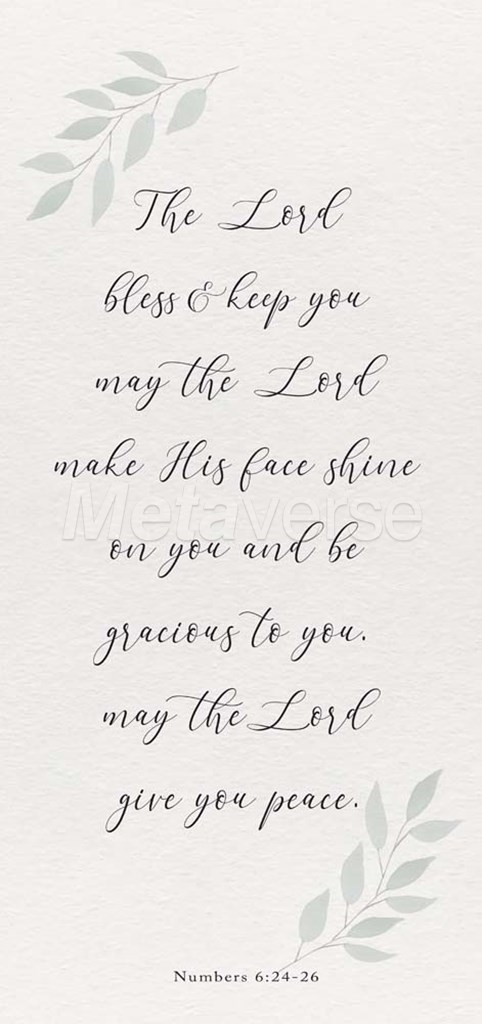 The Lord
bless & keep you
may the Lord
make His face shine
Metaverse
on you and be
gracious to you.
may the Lord
give you peace.
Numbers 6:24-26